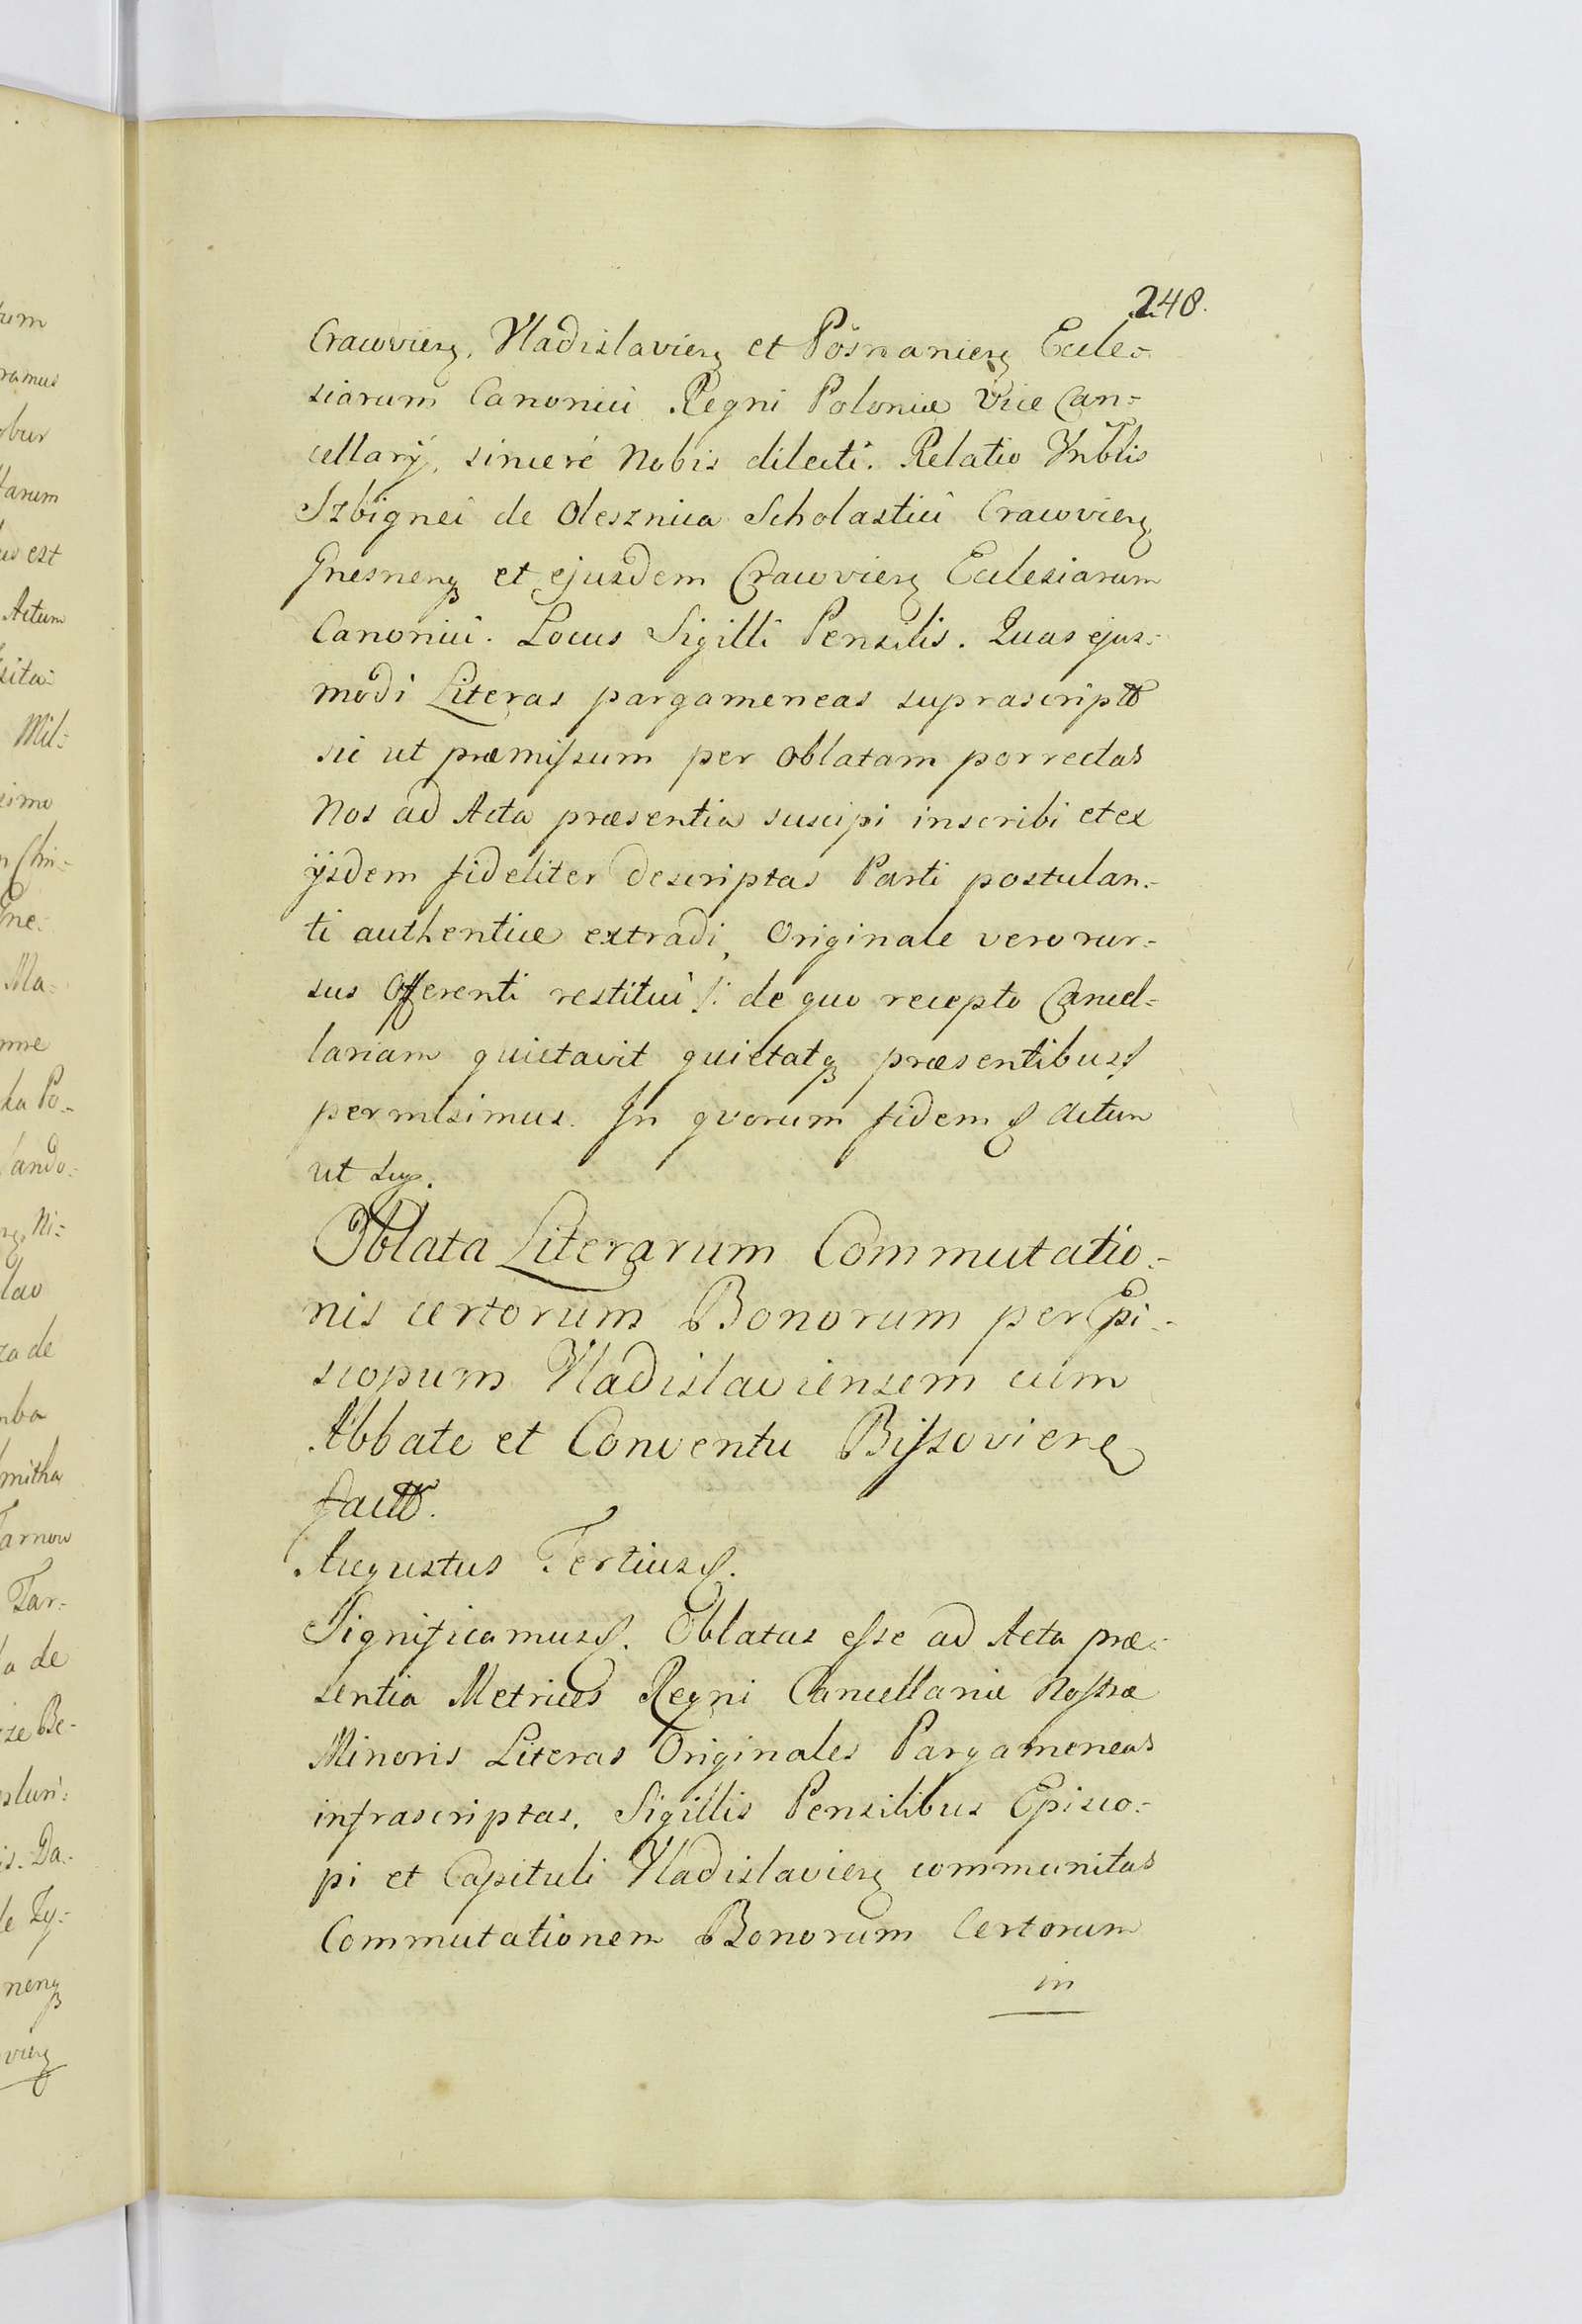 248.
Cracovien, Vladislavien et Posnanien Eccle-
siarum Canonici Regni Poloniæ Vice Can=
cellarÿ, sincerè Nobis dilecti. Relatio Vnblis
Szbignei de Olesznica Scholastici Cracovien,
Gnesnenq et ejusdem Cracovien Ecclesiarum
Canonici. Locus Sigilli Pensilis. Quas ejus=
modi Literas pargameneas suprascriptt
sic ut præmissum per Oblatam porrectas
Nos ad Acta præsentia suscipi inscribi et ex
ijsdem fideliter descriptas Parti postulan=
ti authentice extradi, Originale vero rur=
sus Offerenti restitui /: de quo recepto Cancel=
lariam quietavit quietatq præsentibus :/
permisimus. In qvorum fidem & Actum
ut sup.
Oblata Literarum Commutatio=
nis certorum Bonorum per Epi=
scopum Vladislaviensem cum
Abbate et Conventu Bissovien
factt.
Augustus Tertius &.
Significamus &. Oblatas esse ad Acta præ=
sentia Metrices Regni Cancellariæ Nostræ
Minoris Literas Originales Pargameneas
infrascriptas, Sigillis Pensilibus Episco=
pi et Capituli Vladislavien communitas
Commutationem Bonorum Certorum
in
tum
ramus
tarum
est
Actum
sita=
Mil=
simo
Chri=
Gne=
Ma=
ka Po=
Sando=
Ni=
lao
za de
mba
mitha
Tarnow
Tar=
la de
Be=
slun=
is. Da=
de Zy=
nenq
vien